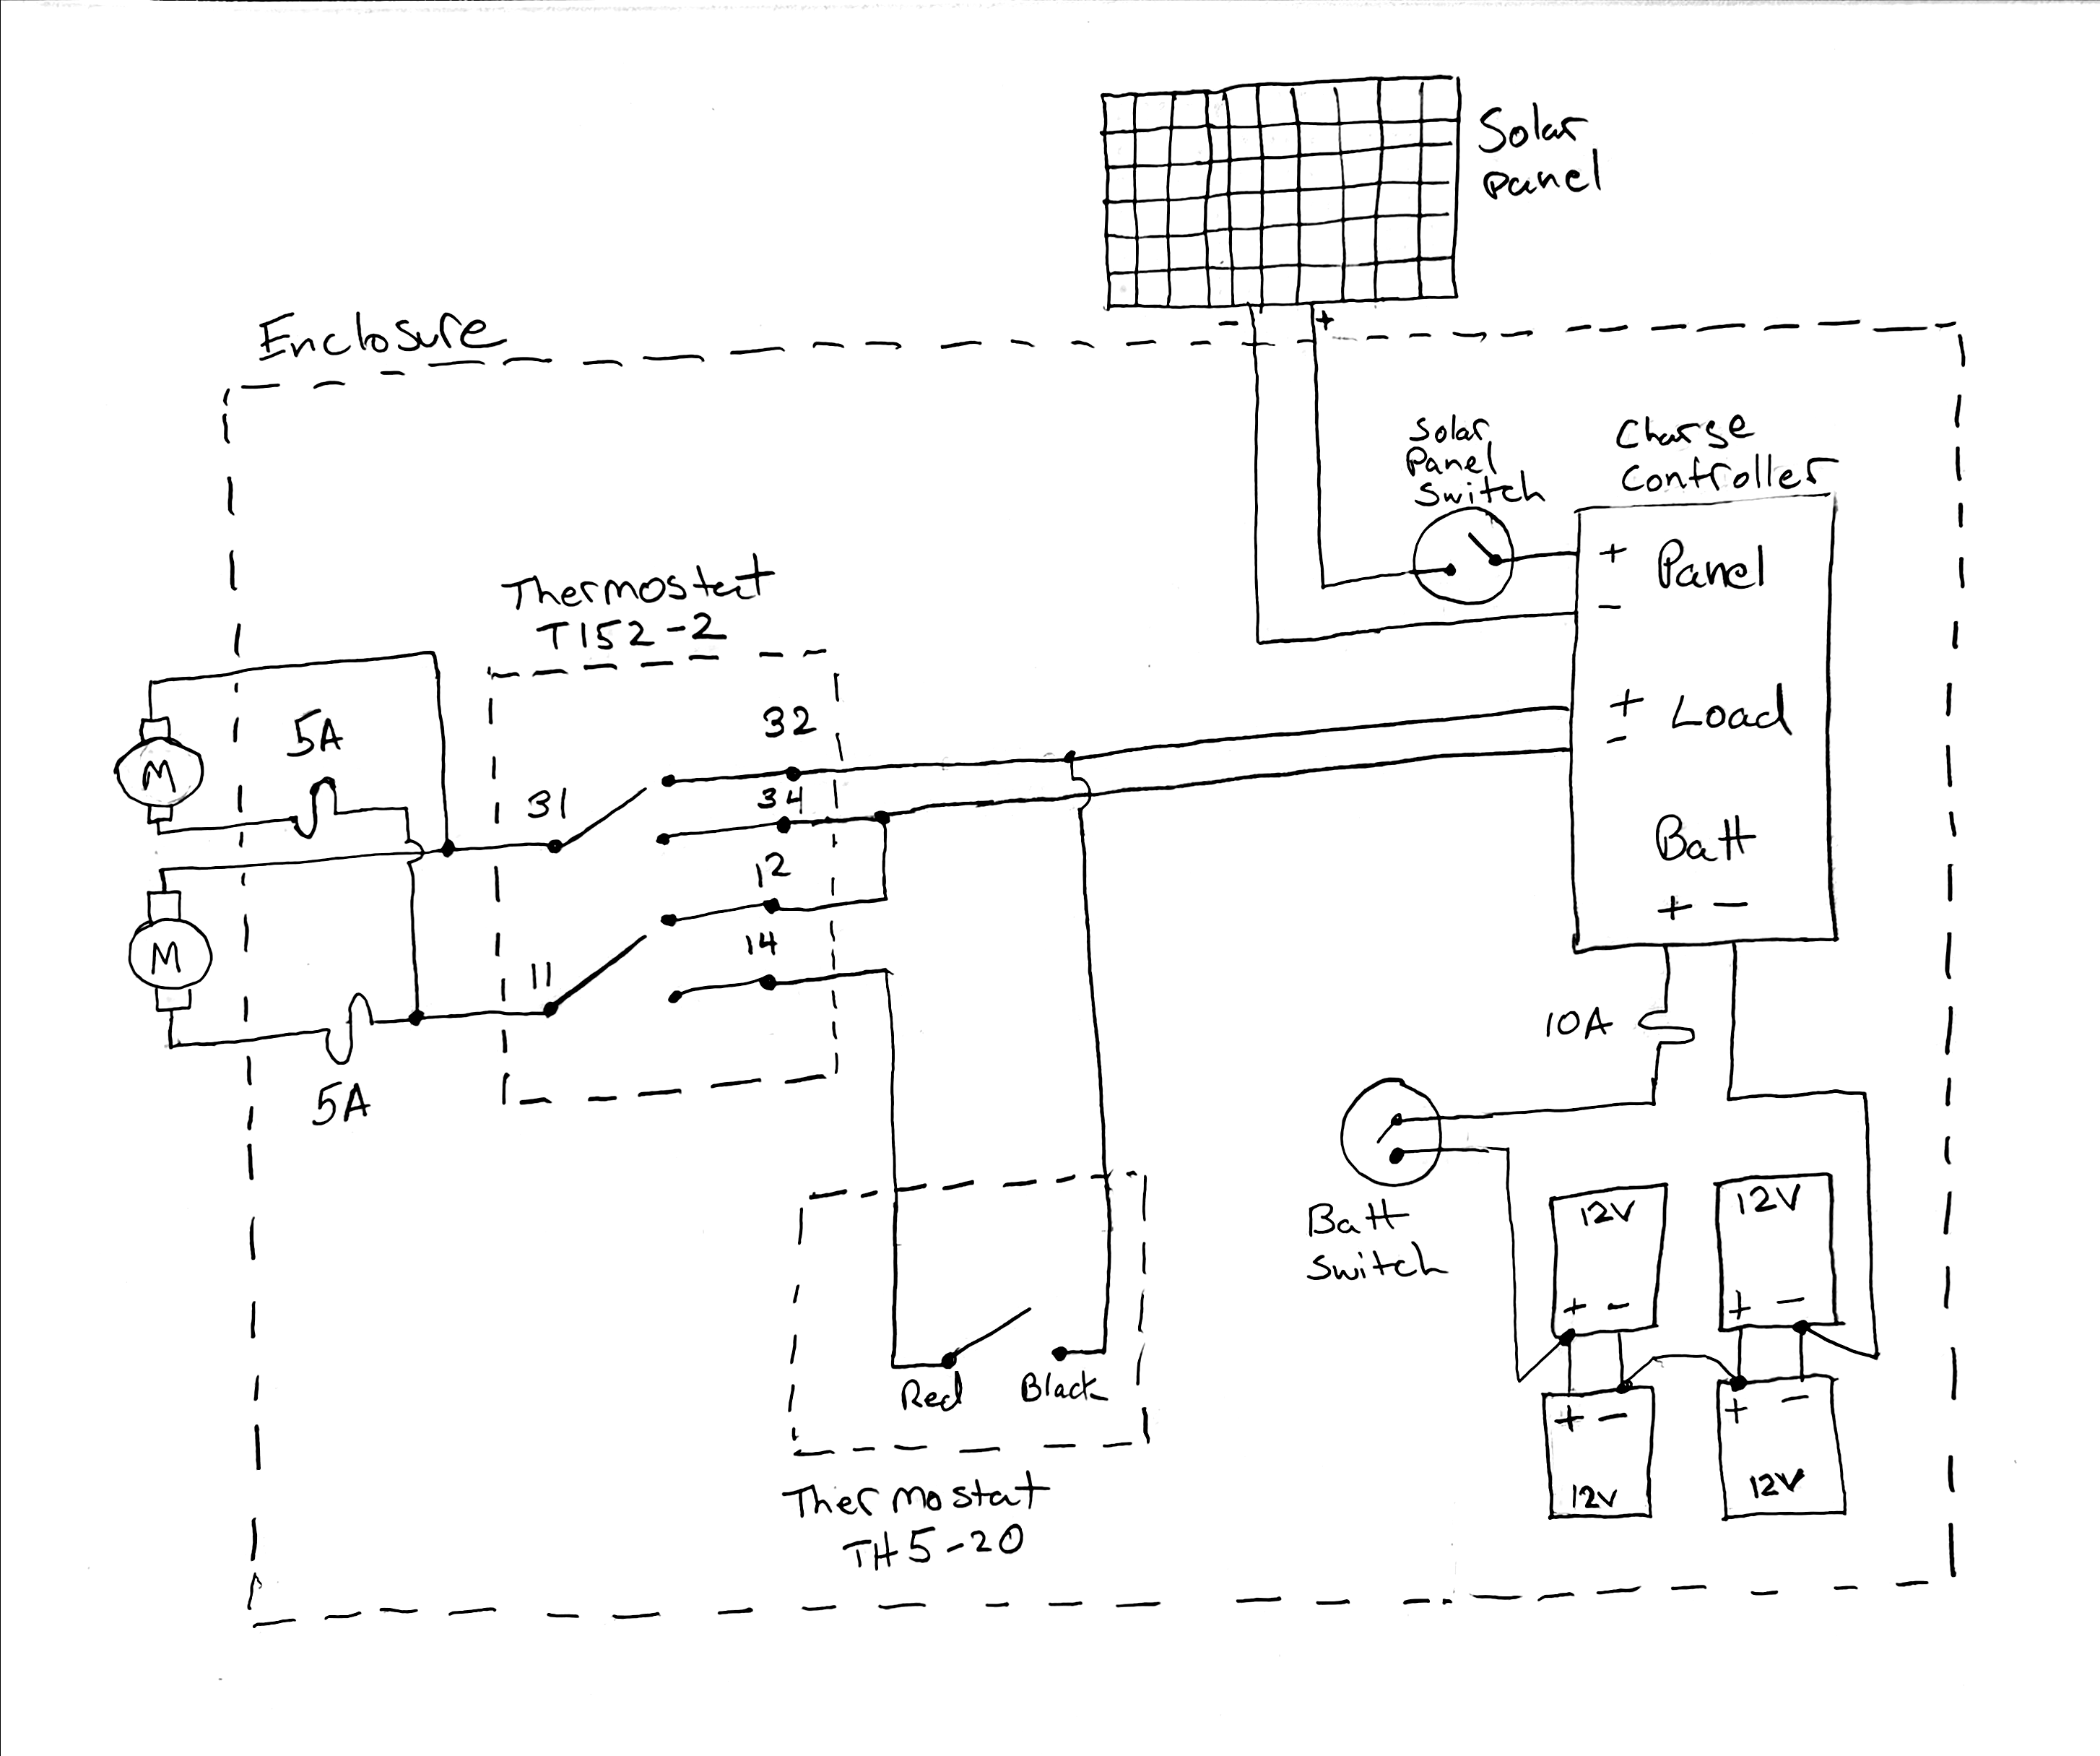 Solar
Panel
- +
Enclosure
Solar
Panel
Switch
Charge
Controller
+ Panel
-
Thermostat
T152-2
+ Load
-
32
5A
M
31
34
12
Batt
+ -
14
M
11
10A
5A
Batt
Switch
12V
12V
+ -
+ -
Red
Black
+ -
+ -
12V
12V
Thermostat
TH5-20